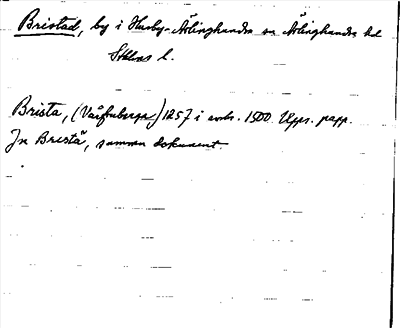 Bristad, by i Husby-Ärlinghundra sn Ärlinghundra hd
Sthlms l.
Brista, (Vårfruberga) 1257 i avskr. 1500 Upps. papp.
Jn Bristä, samma dokument.